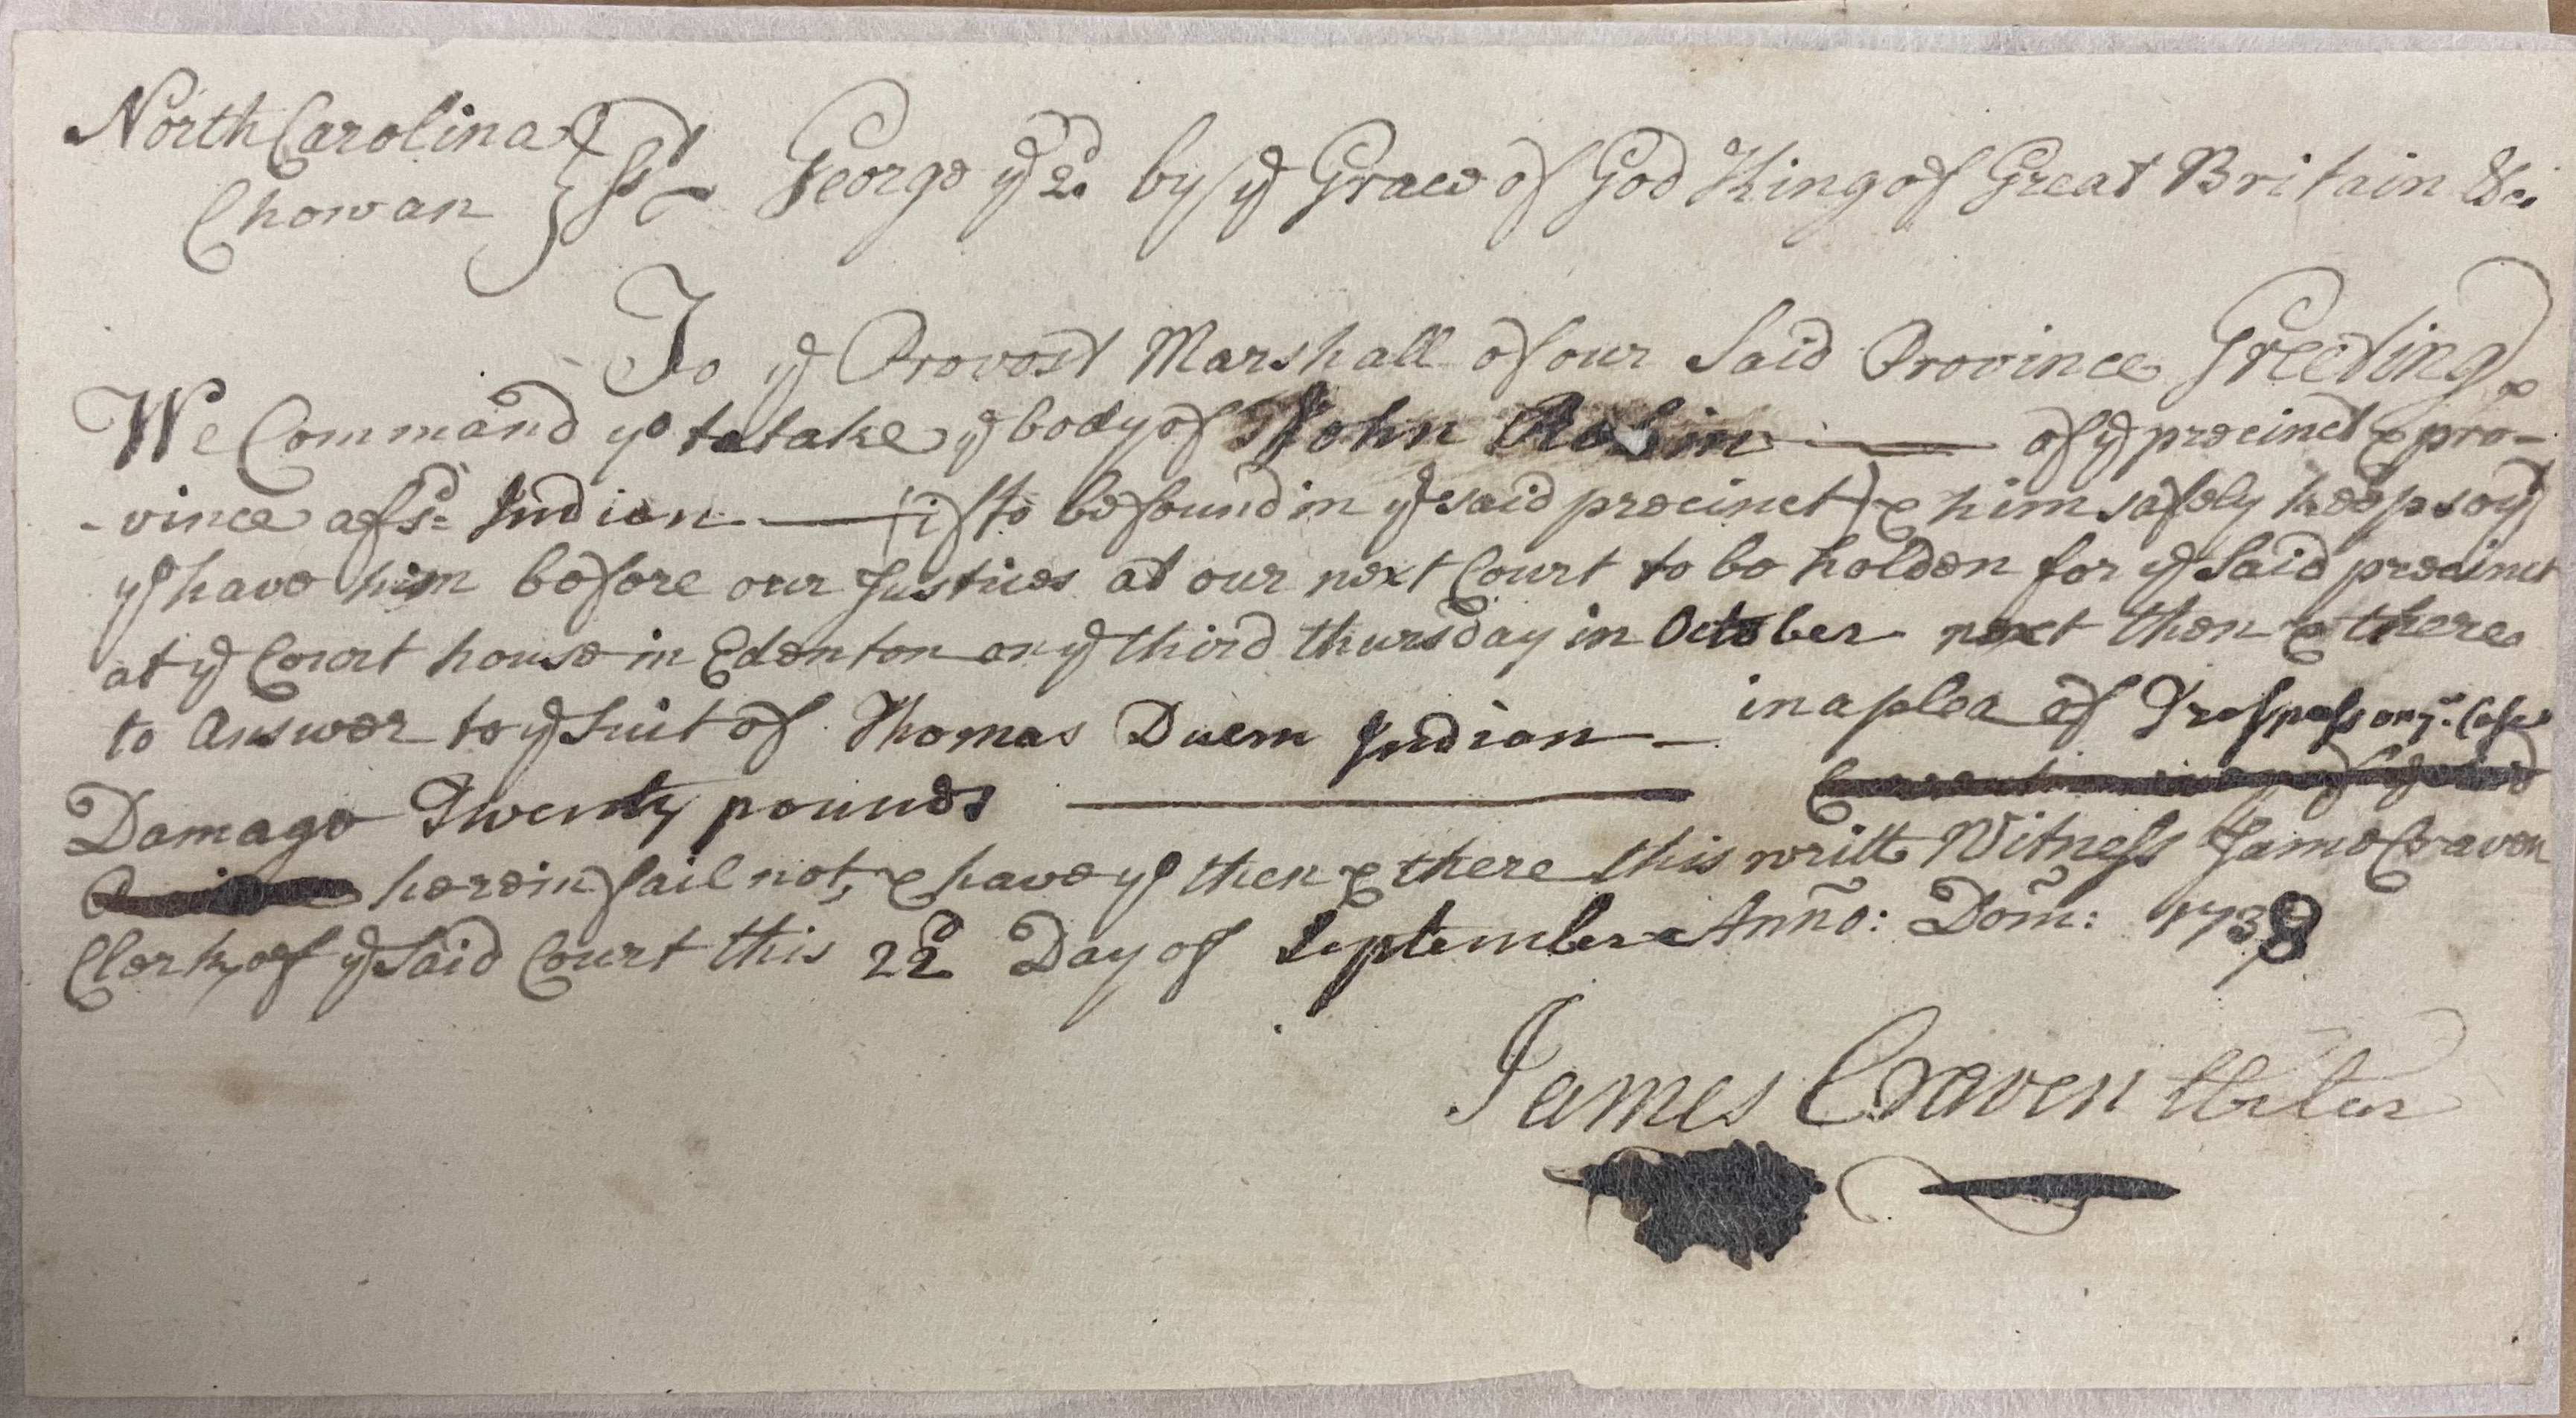 North Carolina
Chowan } ss George ye 2d by ye Grace of God King of Great Britain &c.
To ye Provost Marshall of our Said Province Greeting
We Command yo to take ye body of John Robin — of ye precinct & pro-
-vince afsd: Indian — (if to be found in ye said precinct) & him safely keep so yt
yo have him before our Justices at our next Court to be holden for ye Said precinct
at ye Court house in Edenton on ye third thursday in October next then & there
to Answer to ye Suit of Thomas Duem Indian — in a plea of Trespass on ye Case
Damage Twenty pounds —
herein fail not, & have yo then & there this writt Witness James Craven
Clerk of ye Said Court this 22d Day of September Anño: Dom̃: 1738
James Craven